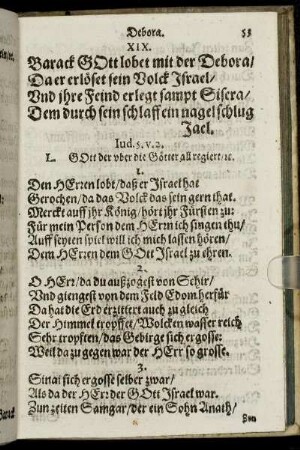 Debora. 53
XIX.
Barack GOtt lobet mit der Debora/
Da er erlöset sein Volck Israel/
Vnd jhre Feind erlegt sampt Sisera/
Dem durch sein schlaff ein nagel schlug
Jael.
Iud. 5. v. 2.
L. GOtt der vber die Götter all regiert/ ıc.
1.
Den HErren lobt/ daß er Israel hat
Gerochen/ da das Volck das sein gern that.
Merckt auff ihr König/ hört ihr Fürsten zu:
Für mein Person dem HErrn ich singen thu/
Auff seyten spiel will ich mich lassen hören/
Dem HErren dem GOtt Israel zu ehren.
2.
O HErr/ da du außzogest von Sehir/
Vnd giengest von dem Feld Edom herfür
Da hat die Erd erzittert auch zu gleich
Der Himmel tropffet/ Wolcken wasser reich
Sehr tropfften/ das Gebirge sich ergosse:
Weil da zu gegen war der HErr so grosse.
3.
Sinai sich ergosse selber zwar/
Als da der HErr der GOtt Israel war.
Zun zeiten Samgar/ der ein Sohn Anath/